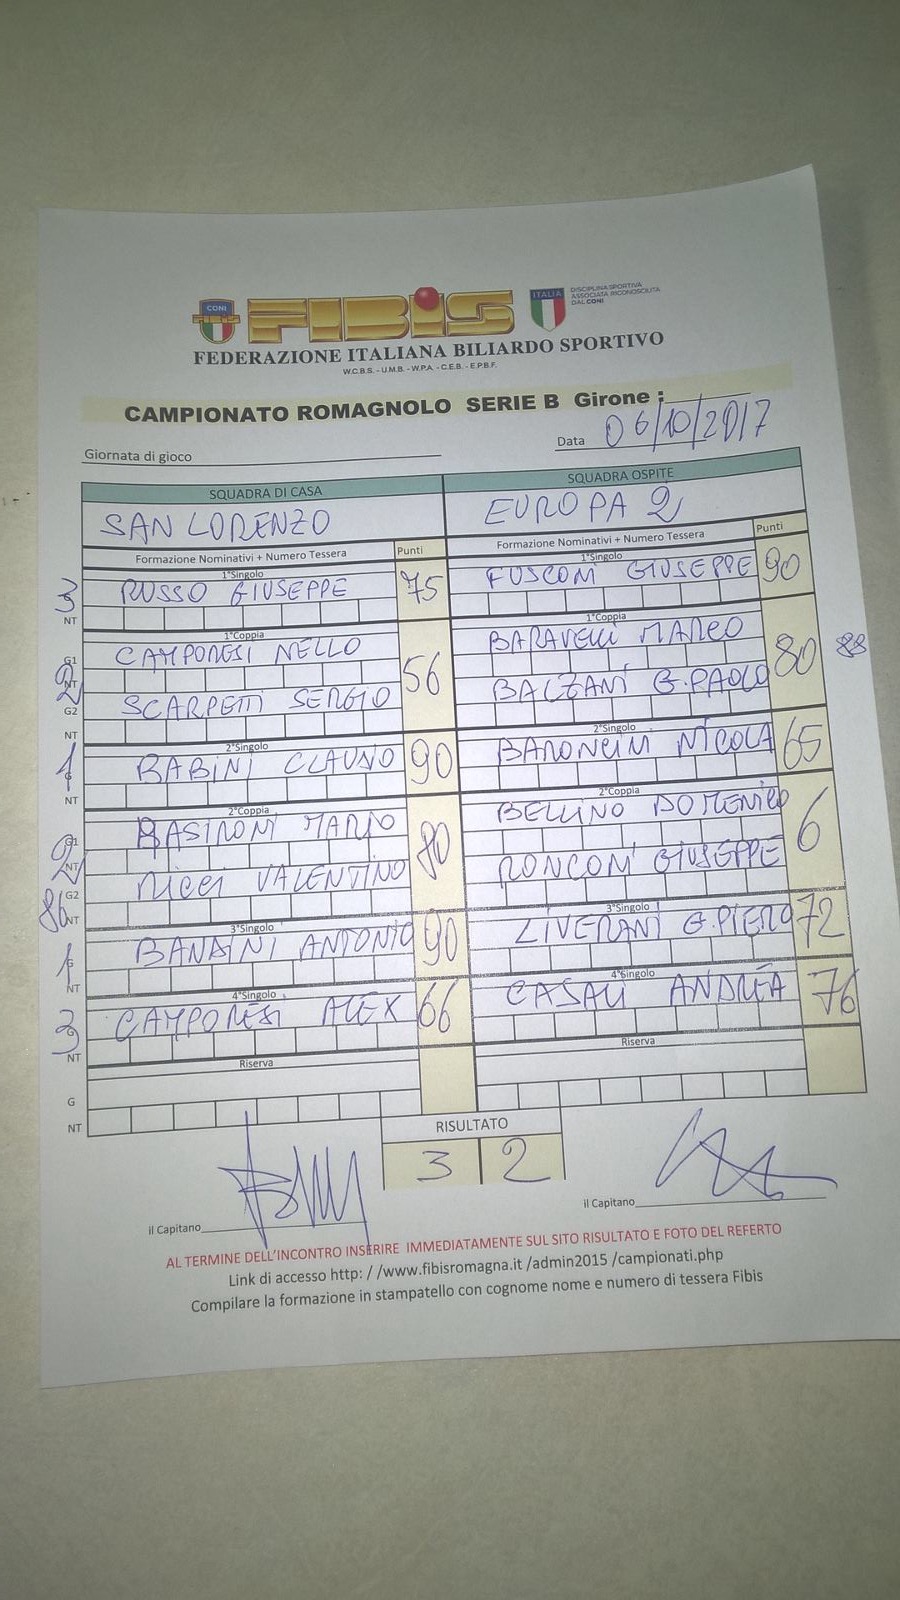 CONI
FIBIS
ITALIA
DISCIPLINA SPORTIVA
ASSOCIATA RICONOSCIUTA
DAL CONI
FEDERAZIONE ITALIANA BILIARDO SPORTIVO
W.C.B.S. - U.M.B. - W.P.A. - C.E.B. - E.P.B.F.
CAMPIONATO ROMAGNOLO SERIE B Girone :
Giornata di gioco
Data 06/10/2017
SQUADRA DI CASA SQUADRA OSPITE
SAN LORENZO EUROPA 2
Formazione Nominativi + Numero Tessera Punti Formazione Nominativi + Numero Tessera Punti
1°Singolo 1°Singolo
3 RUSSO GIUSEPPE 75 FUSCONI GIUSEPPE 90
NT
1°Coppia 1°Coppia
G1 CAMPORESI NELLO 56 BARAVELLI MARCO 80 88
2 NT
G2 SCARPETTI SERGIO BALZANI G.PAOLO
NT
2°Singolo 2°Singolo
1 BABINI CLAUDIO 90 BARONCINI NICOLA 65
NT
2°Coppia 2°Coppia
G1 BASIRONI MARIO 80 BELLINO DOMENICO 6
2 NT
G2 RICCI VALENTINO RONCONI GIUSEPPE
86 NT
3°Singolo 3°Singolo
1 G BANDINI ANTONIO 90 LIVERANI G.PIERO 72
NT
4°Singolo 4°Singolo
3 G CAMPORESI ALEX 66 CASALI ANDREA 76
NT
Riserva Riserva
G
NT
RISULTATO
3 2
il Capitano il Capitano
AL TERMINE DELL'INCONTRO INSERIRE IMMEDIATAMENTE SUL SITO RISULTATO E FOTO DEL REFERTO
Link di accesso http: / /www.fibisromagna.it /admin2015 /campionati.php
Compilare la formazione in stampatello con cognome nome e numero di tessera Fibis